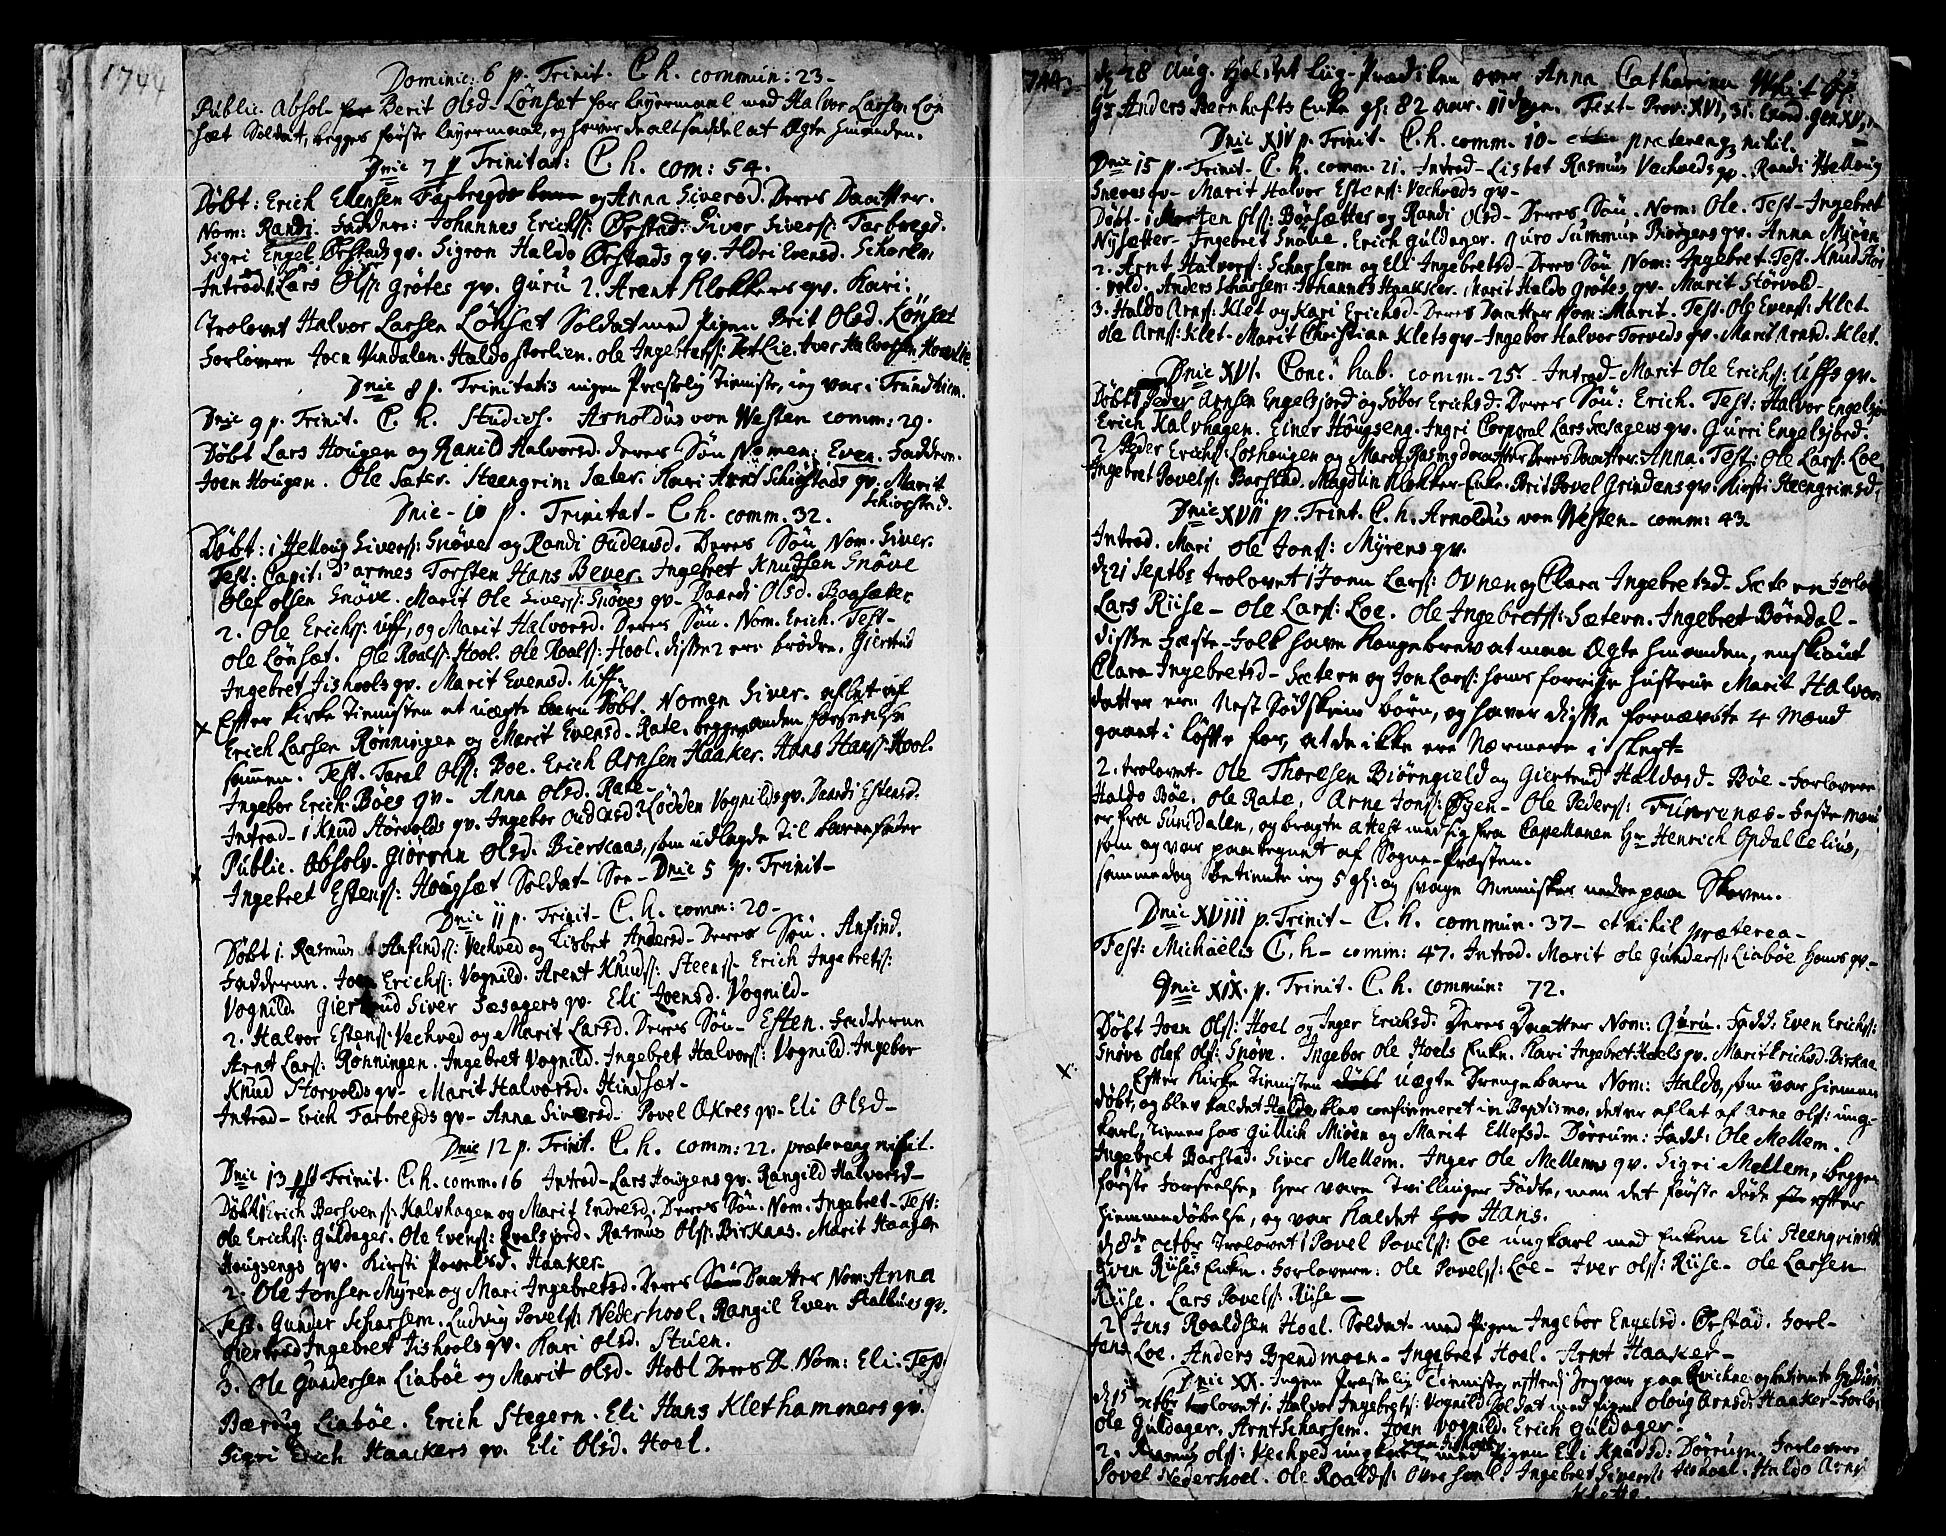 1744
Dominic: 6 p. Trinit. C. h. commun: 23-
Public. Absol. Berit Olsd. Lønsæt for leyermaal med Halvor Larsen Løn
sæt Soldat, begges første leyermaal, og haver de alt saddel at Ægte hinanden.
Dnic 7 p Trinitat: C. h. com: 54.
Døbt: Erich Ellensen Farbregds og Anna Siversd. Deres Daatter.
Nom: Randi. Faddere: Johannes Erichss: Ørstad. Siver Siverss: Farbregd.
Sigri Engel Ørstads qv. Sigron Haldo Ørstads qv. Aldri Evensd. Scharsem
Introd. 1. Lars Olss: Grøtes qv. Guru 2. Arent Klokkers qv. Kari:
Trolovet Halvor Larsen Lønsæt Soldat med Pigen Brit Olsd. Lønsæt
Forlovere Joen Vindalen. Haldo Storlien. Ole Ingebretss: Lie. Iver Halvorsen
Dnic 8 p. Trinitatis ingen Præstelig Tieniste, ieg var i Trundhiem.
Dnic 9 p. Trinit. C. h. Studios. Arnoldus von Westen comm: 29.
Døbt Lars Hougen og Ranild Halvorsd. deres Søn Nomen: Even. Faddere.
Joen Hougen. Ole Sæter. Steengrim Sæter. Kari Arnt Schiøstads qv. Marit
Schioestad.
Dnic- 10 p. Trinitat- C. h. comm. 32.
Døbt: 1 Hellouig Siverss: Snøve og Randi Oudensd. Deres Søn Nom. Siver.
Test: Capit: d'armes Torsten Hans Bever. Ingebret Knudsen Snøve
Olef Olsen Snøve. Marit Ole Siverss: Snøves qv- Baardi Olsd. Boasæter
2. Ole Erichss: Uff, og Marit Halvorsd. Deres Søn. Nom. Erich. Test-
Ole Lønsæt. Ole Roalss: Hool. Ole Roalss: Hool. disse 2 ere brødre. Giertrud
Ingebret Fishools qv. Marit Evensd. Uff.
x Efter Kirke Tienisten et uægte barn Døbt. Nomen Siver. aflet af
Erich Larsen Rønningen og Marit Evensd. Rate. begges anden forseelse
sammen. Test. Taral Olss: Boe. Erich Arnsen Haaker. Hans Hanss: Hool.
Ingebor Erich Bøes qv- Anna Olsd. Rate-
Introd- 1 Knud Hørvolds qv. Ingebor Oudensd. 2 Lodden Vognilds qv. Baardi Estensd.
Public. Absolv. Giørran Olsd. Bierskaas, som udlagde til barnefader
Ingebret Estenss: Hougsæt Soldat- See- Dnic 5 p. Trinit-
Dnic 11 p. Trinit- C. h. comm: 20-
Døbt 1. Rasmus Anfindss: Vechved og Lisbet Andersd- Deres Søn. Anfind.
Fadderne. Joen Erichss: Vognild. Arent Knudss: Steen- Erich Ingebretss:
Vognild. Giertrud Siver Sæsagers qv. Eli Joensd. Vognild-
2. Halvor Estenss: Vechved og Marit Larsd. Deres Søn- Esten. Fadderne
Arnt Larss: Rønningen. Ingebret Vognild. Ingebret Halvorss: Vognild. Ingebor
Knud Storvolds qv- Marit Halvorsd. Hindsæt-
Introd- Erich Farbregds qv- Anna Siversd- Povel Økres qv- Eli Olsd-
Dnic 12 p. Trinit. C. h. comm: 22. præterea nihil.
Dnic 13 p. Trinit. C. h. comm. 16 Introd- Lars Hougens qv. Rangild Halvorsd-
Døbt 1 Erich Bersvenss: Kalvhagen og Marit Endresd. Deres Søn. Nom. Ingebret- Test:
Ole Erichss: Guldager. Ole Evenss: Engelsjord. Rasmus Olss: Birkaas. Marit Haagen
Hougsengs qv. Kirsti Povelsd. Haaker.
2. Ole Jonsen Myren og Mari Ingebretsd. Deres Daatter Nom: Anna
Test. Gunder Scharsem. Ludvig Povelss: Nederhool. Rangil Even Stalbues qv.
Giertrud Ingebret Fishools qv. Kari Olsd. Stuen.
3. Ole Gundersen Liabøe og Marit Olsd. Hool Deres D. Nom: Eli. Test.
Bærug Liabøe. Erich Stegern. Eli Hans Klethammers qv.
Sigri Erich Haackers qv. Eli Olsd. Hoel.
1744
d. 28 Aug. Holdet Liig-Prædiken over Anna Catharina
Hr Anders Bernhofts Enke gl: 82 aar. 11 dage. Text- Prov: XVI, 31. Exord. Gen XV,
Dnic XIV p. Trinit. C. h. comm. 10- præterea nihil.
Dnic 15 p. Trinit. C. h. comm. 21. Introd- Lisbet Rasmus Vechveds qv. Randi Hellouig
Snøves qv- Marit Halvor Estenss: Vechveds qv-
Døbt- 1 Morten Olss: Bøesætter og Randi Olsd- Deres Søn. Nom: Ole. Test- Ingebret
Nysætter- Ingebret Snøve. Erich Guldager. Guro Summun Biørgens qv. Anna Miøen
2. Arnt Halvorss: Scharsem og Eli Ingebretsd- Deres Søn Nom: Ingebret. Test. Knud Stor
vold. Anders Scharsem. Johannes Haaker. Marit Haldo Grøtes qv- Marit Storvold-
3. Haldo Arnss: Klet og Kari Erichsd- Deres Daatter Nom: Marit. Test. Ole Evenss: Klet.
Ole Arnss: Klet- Marit Christian Klets qv- Ingebor Halvor Torveds qv- Marit Arnsd. Klet.
Dnic XVI. Conc. hab. comm- 25. Introd- Marit Ole Erichss: Uffs qv.
Døbt 1 Peder Arnsen Engelsjord og Søbor Erichsd- Deres Søn: Erich. Test: Halvor Engelsjord
Erich Kalvhagen. Einer Hougseng. Ingri Corporal Lars Sæsagers qv. Gurri Engelsjord.
2. Peder Erichss: Loshougen og Marit Rasmusdaatter Deres Daatter. Anna. Test: Ole Larss: Loe
Ingebret Povelss: Barstad. Magdlin Klokker-Enke. Brit Povel Grindens qv. Kirsti Steengrimsd.
Dnic XVII p. Trinit. C. h. Arnoldus von Westen- comm: 43-
Introd. Mari Ole Jonss: Myrens qv.
d. 21 Septbr trolovet 1 Jonn Larss: Ovnen og Clara Ingebretsd- Sætern Forlov
Lars Riise- Ole Larss: Loe. Ole Ingebretss: Sætern. Ingebret Børndal-
disse Fæste-Folk have Kongebrev at maa Ægte hinanden, enskiønt
Clara Ingebretsd- Sætern og Jon Larss: hans forrige hustrue Marit Halvor
datter ere Nest Sødskene børn, og haver disse fornævnte 4 Mænd
gaaet i løfte for, at de ikke ere Nærmere i slegt-
2. trolovet- Ole Thoresen Biørngield og Giertrud Haldosd- Bøe- Forlovere
Haldo Bøe. Ole Rate. Arne Jonss: Øyen- Ole Pederss: Furrenæs- Feste-mand
er fra Sundalen, og bragte attest med sig fra Capellanen Hr Henrich Opdal Celius,
som og var paategnet af Sogne-Præsten.
samme dag betiente ieg 5 gl: og svage Mennisker nedre paa Skoven.
Dnic XVIII p. Trinit- C. h. commun. 37- et nihil præterea-
Fest: Michaelis C. h- comm: 47. Introd. Marit Ole Gunderss: Liabøe hans qv-
Dnic XIX. p. Trinit. C. h. commun: 72.
Døbt Joen Olss: Hoel og Inger Erichsd. Deres Daatter Nom: Guru. Fadd: Even Erichss:
Snøve Olef Olss: Snøve. Ingebor Ole Hoels Enke. Kari Ingebret Hoels qv. Marit Erichsd. Birkaa
x Efter Kirke Tienisten uægte Drengebarn Nom: Haldo, som var hiemme
døbt, og blev kaldet Haldo, blev confirmeret in Baptismo, det er aflet af Arne Olss: ung
karl, tiener hos Gullich Miøen og Marit Ellefsd- Dørrum: Fadd: Ole Mellem.
Ingebret Barstad. Siver Mellem. Inger Ole Mellems qv. Sigri Mellem, begges
første Forseelse, her vare Tvillinger Fødte, men det første døde efter
hiemmedøbelse, og var kaldet Hans.
d. 8de Octbr Trolovet 1 Povel Povelss: Loe ungkarl med Enken Eli Steengrimsd
Even Riises Enke. Forlovere: Ole Povelss: Loe- Iver Olss: Riise- Ole Larsen
Riise. Lars Povelss. Riise-
2. Jens Roaldsen Hoel. Soldat- med Pigen Ingebor Engelsd. Ørstad. Forl-
Jens Loe. Anders Brendmoen- Ingebret Hoel. Arnt Haaker-
Dnic XX. Ingen Præstelig Tieniste, efterdi Jeg var paa
d. 15 Octbr trolovet 1. Halvor Ingebretss: Vognild Soldat med Pigen Oloug Arnsd: Haaker- Forlov
Ole Guldager. Arnt Scharsem. Joen Vognild. Erich Guldager-
2. Rasmus Olss: Vechved ungkarl med Pigen Eli Knudsd: Dørrum. Forlovere
Povel Nederhoel. Ole Roaldss: Ovrehoel. Ingebret Siverss: Fishoel. Haldo Arns